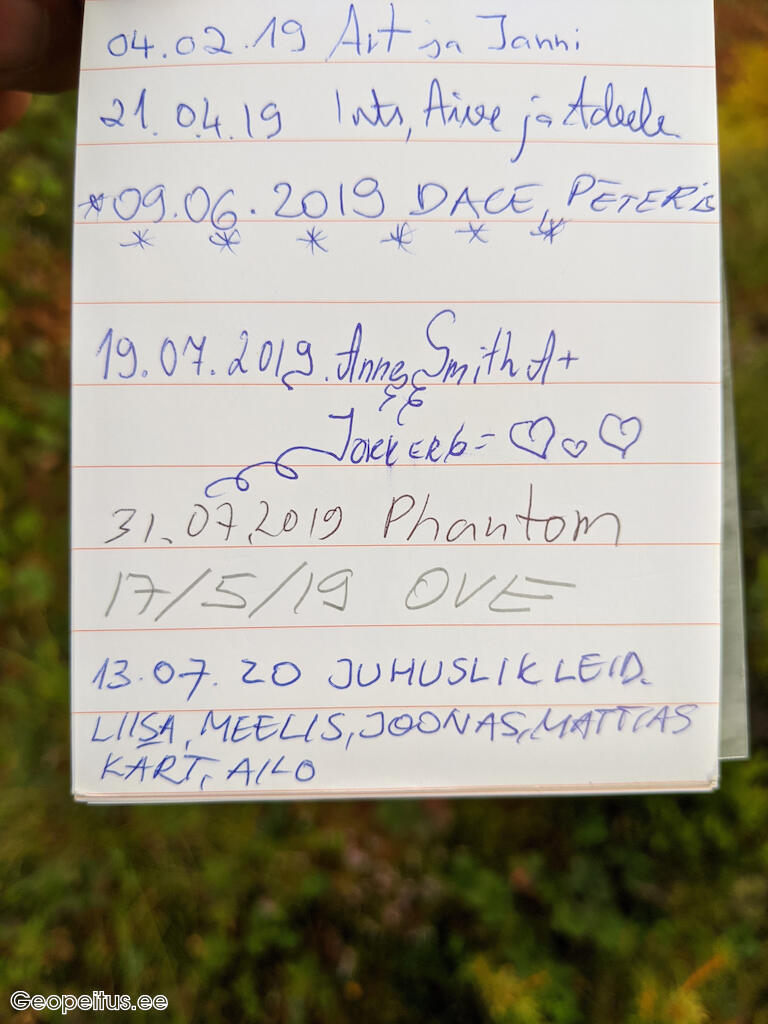 04.02.19 Art ja Janni
21.04.19 Ints, Aive ja Adeele
*09.06.2019 DACE, PĒTERIS
* * * * * *
19.07.2019. Anne Smith A+
&
Jokker6= ♡ ♡ ♡
31.07.2019 Phantom
17/5/19 OVE
13.07.20 JUHUSLIK LEID.
LIISA, MEELIS, JOONAS, MATTIAS
KÄRT, AILO
Geopeitus.ee